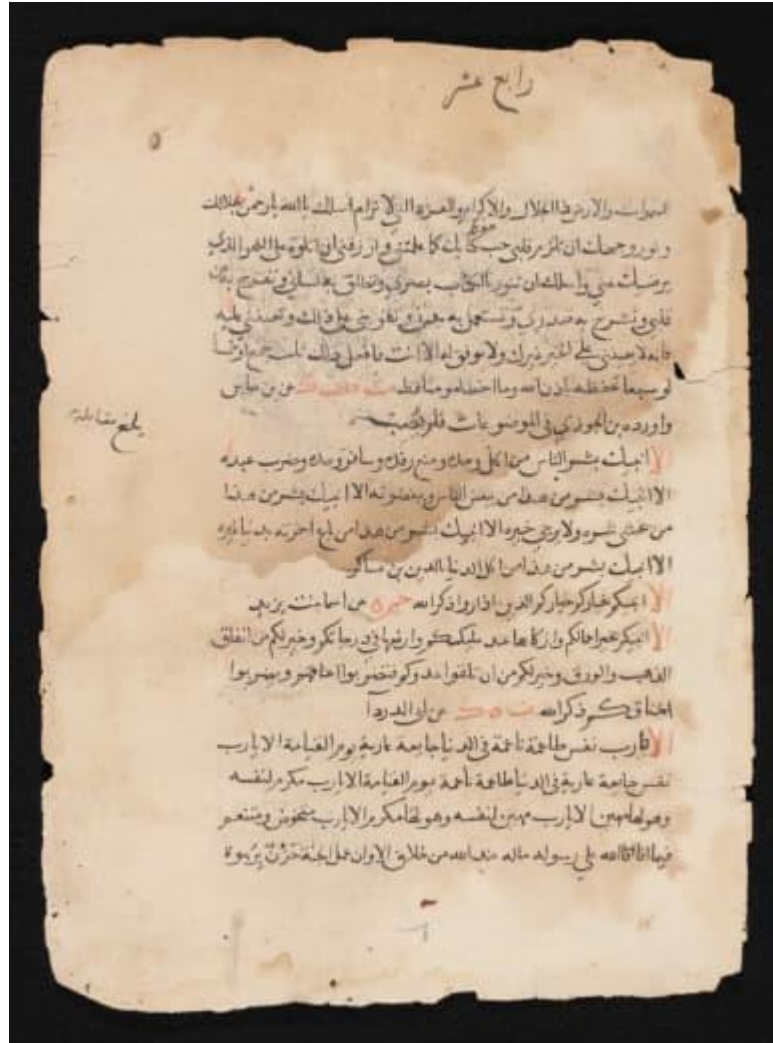 رابع عشر
السموات والارض ذا الجلال والاكرام والعزه التي لا ترام اسلك يا الله يا رحمن بجلالك
ونور وجهك ان تلزم قلبي حب كتابك كما علمتني وارزقني ان اتلوه على النحو الذي
يرضيك عني واسلك ان تنور بالكتاب بصري وتطلق به لساني وتفرج به عن
قلبي وتشرح به صدري وتستعمل به بدني وتقويني على ذلك وتعينني عليه
فانه لا يعينني على الخير غيرك ولا موفق له الا انت فافعل ذلك ثلث جمع او خمسا
او سبعا تحفظه باذن الله وما اخطا مومنا قط عن بن عباس
واورده بن الجوزي في الموضوعات فلم يصب
بلغ مقابلة
الا انبيك بشر الناس من اكل وحده ومنع رفده وسافر وحده وضرب عبده
الا انبيك بشر من هذا من يبغض الناس ويبغضونه الا انبيك بشر من هذا
من يخشى شره ولا يرجى خيره الا انبيك بشر من هذا من باع اخرته بدنيا غيره
الا انبيك بشر من هذا من اكل الدنيا بالدين بن عساكر
الا انبيكم خياركم خياركم الذين اذا روا ذكر الله حم ه عن اسما بنت يزيد
الا انبيكم بخير اعمالكم وازكاها عند مليككم وارفعها في درجاتكم وخير لكم من انفاق
الذهب والورق وخير لكم من ان تلقوا عدوكم فتضربوا اعناقهم ويضربوا
اعناقكم ذكر الله ت ه ك عن ابي الدردآ
الا يا رب نفس طاعمة ناعمة في الدنيا جايعة عارية يوم القيامة الا يا رب
نفس جايعة عارية في الدنيا طاعمة ناعمة يوم القيامة الا يا رب مكرم لنفسه
وهو لها مهين الا يا رب مهين لنفسه وهو لها مكرم الا يا رب متخوض ومتنعم
فيما افا الله على رسوله ماله عند الله من خلاق الا وان عمل الجنة حزن بربوة